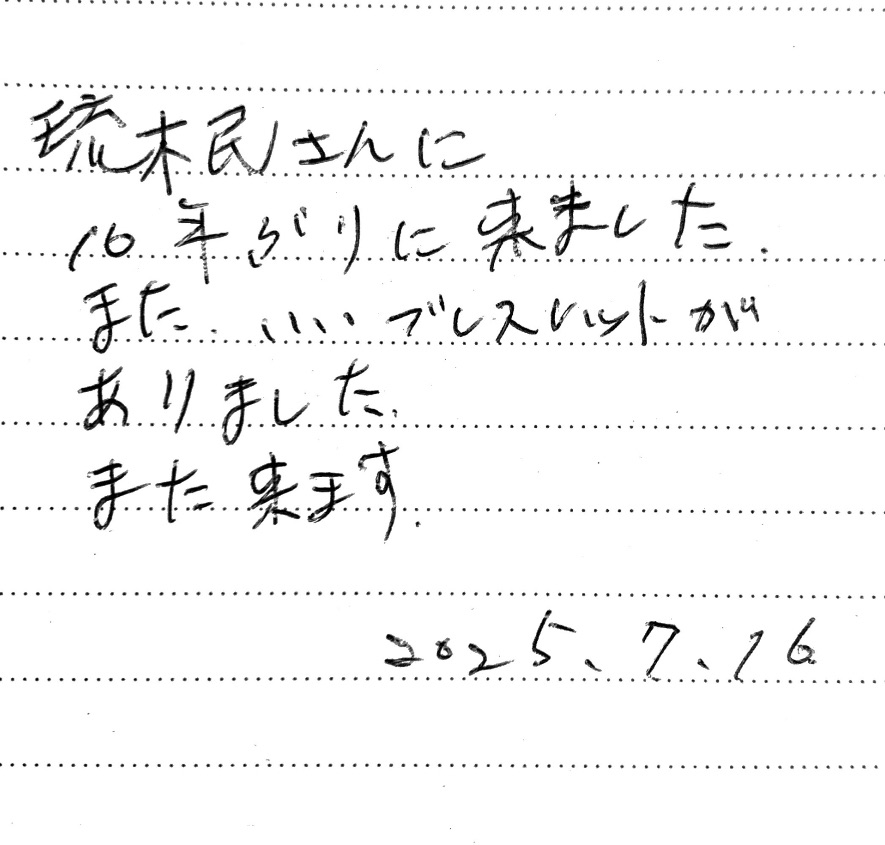 琉木民さんに
10年ぶりに来ました.
また、いい ブレスレットが
ありました.
また来ます.
2025、7、16